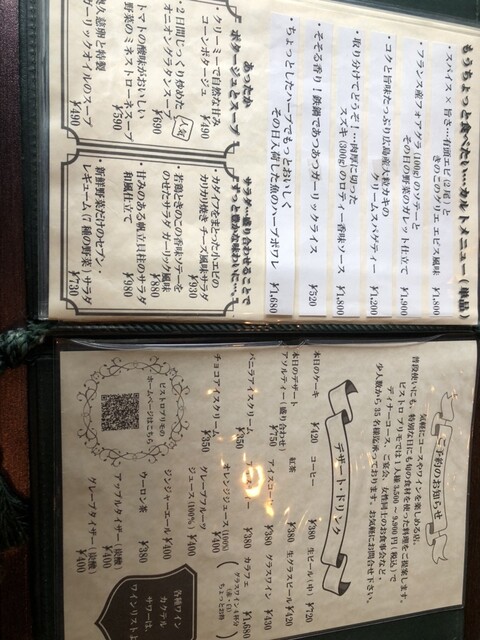 もうちょっと食べたい…カルトメニュー(単品)
・スパイス×旨き…有頭エビ(2尾)と
きのこのグリエ エピス風味 ¥1,800
・フランス産フォアグラ(100g)のソテーと
その日の野菜のガレット仕立て ¥1,900
・コクと旨味たっぷり広島産大粒カキの
クリームスパゲティー ¥1,200
・取り分けてどうぞ!…肉厚に切った
スズキ(300g)のロティー香味ソース ¥1,800
・そそる香り!鉄鍋であつあつガーリックライス ¥520
・ちょっとしたハーブでもっとおいしく
その日入荷した魚のハーブポワレ ¥1,680
あったか
ポタージュとスープ
・クリーミーで自然な甘み
コーンポタージュ ¥490
・2日間じっくり炒めた
オニオングラタンスープ ¥690
人気
トマトの酸味がおいしい
野菜のミネストローネスープ ¥590
奥久慈卵と特製
ガーリックオイルのスープ ¥490
サラダ…盛り合わせることで
ずっと豊かな味わいに…
・カダイフをまとった小エビの
カリカリ焼き チーズ風味サラダ ¥930
・若鶏ときのこの香味ソテーを
のせたサラダ ガーリック風味 ¥880
・甘みのある帆立貝柱のサラダ
和風仕立て ¥980
・新鮮野菜だけのセブン・
レギューム(7種の野菜)サラダ ¥730
ご予約のお知らせ
気軽にコースやワインを楽しめる店。
普段使いにも、特別な日にも旬の食材を使った料理をご提案します。
ビストロ プリモでは1人様3,500～9,800円(税込)で
ディナーコース、ご宴会、女性同士のお食事会など、
少人数から35名様迄承っております。お気軽にお問合せ下さい。
デザート・ドリンク
本日のケーキ ¥420
本日のデザート
アソルティー(盛り合わせ) ¥750
バニラアイスクリーム ¥350
チョコアイスクリーム ¥350
コーヒー ¥380
紅茶 ¥380
アイスコーヒー ¥380
アイスティー ¥380
オレンジジュース(100%) ¥400
グレープフルーツ
ジュース(100%) ¥400
ジンジャーエール ¥400
ウーロン茶 ¥380
アップルタイザー(炭酸) ¥400
グレープタイザー(炭酸) ¥400
生ビール(中) ¥720
生グラスビール ¥420
グラスワイン ¥430
カラフェ ¥1,680
(グラスワイン4杯分
赤・白
ちょっとお得)
各種ワイン
カクテル
サワーは、
ワインリストよ
ビストロプリモの
ホームページはこちら